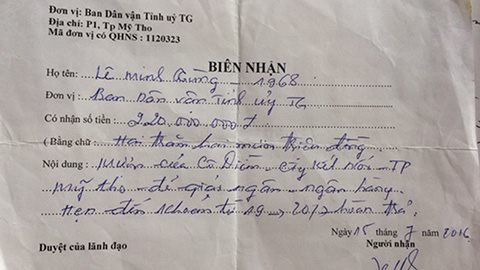 Đơn vị: Ban Dân vận Tỉnh uỷ TG
Địa chỉ: P1, Tp Mỹ Tho
Mã đơn vị có QHNS : 1120323
BIÊN NHẬN
Họ tên: Lê Minh Hùng - 1968
Đơn vị : Ban Dân vân Tỉnh ủy TG
Có nhận số tiền : 220.000.000đ
( Bằng chữ : Hai trăm hai mươi triệu đồng
Nội dung : Mượn của Cô Diễm Cty Kết Nối - TP
Mỹ Tho - để giải ngân - ngân hàng
Hẹn đến khoản từ 19 - 2017 hoàn trả.
Ngày 15 tháng 7 năm 2016
Duyệt của lãnh đạo
Người nhận